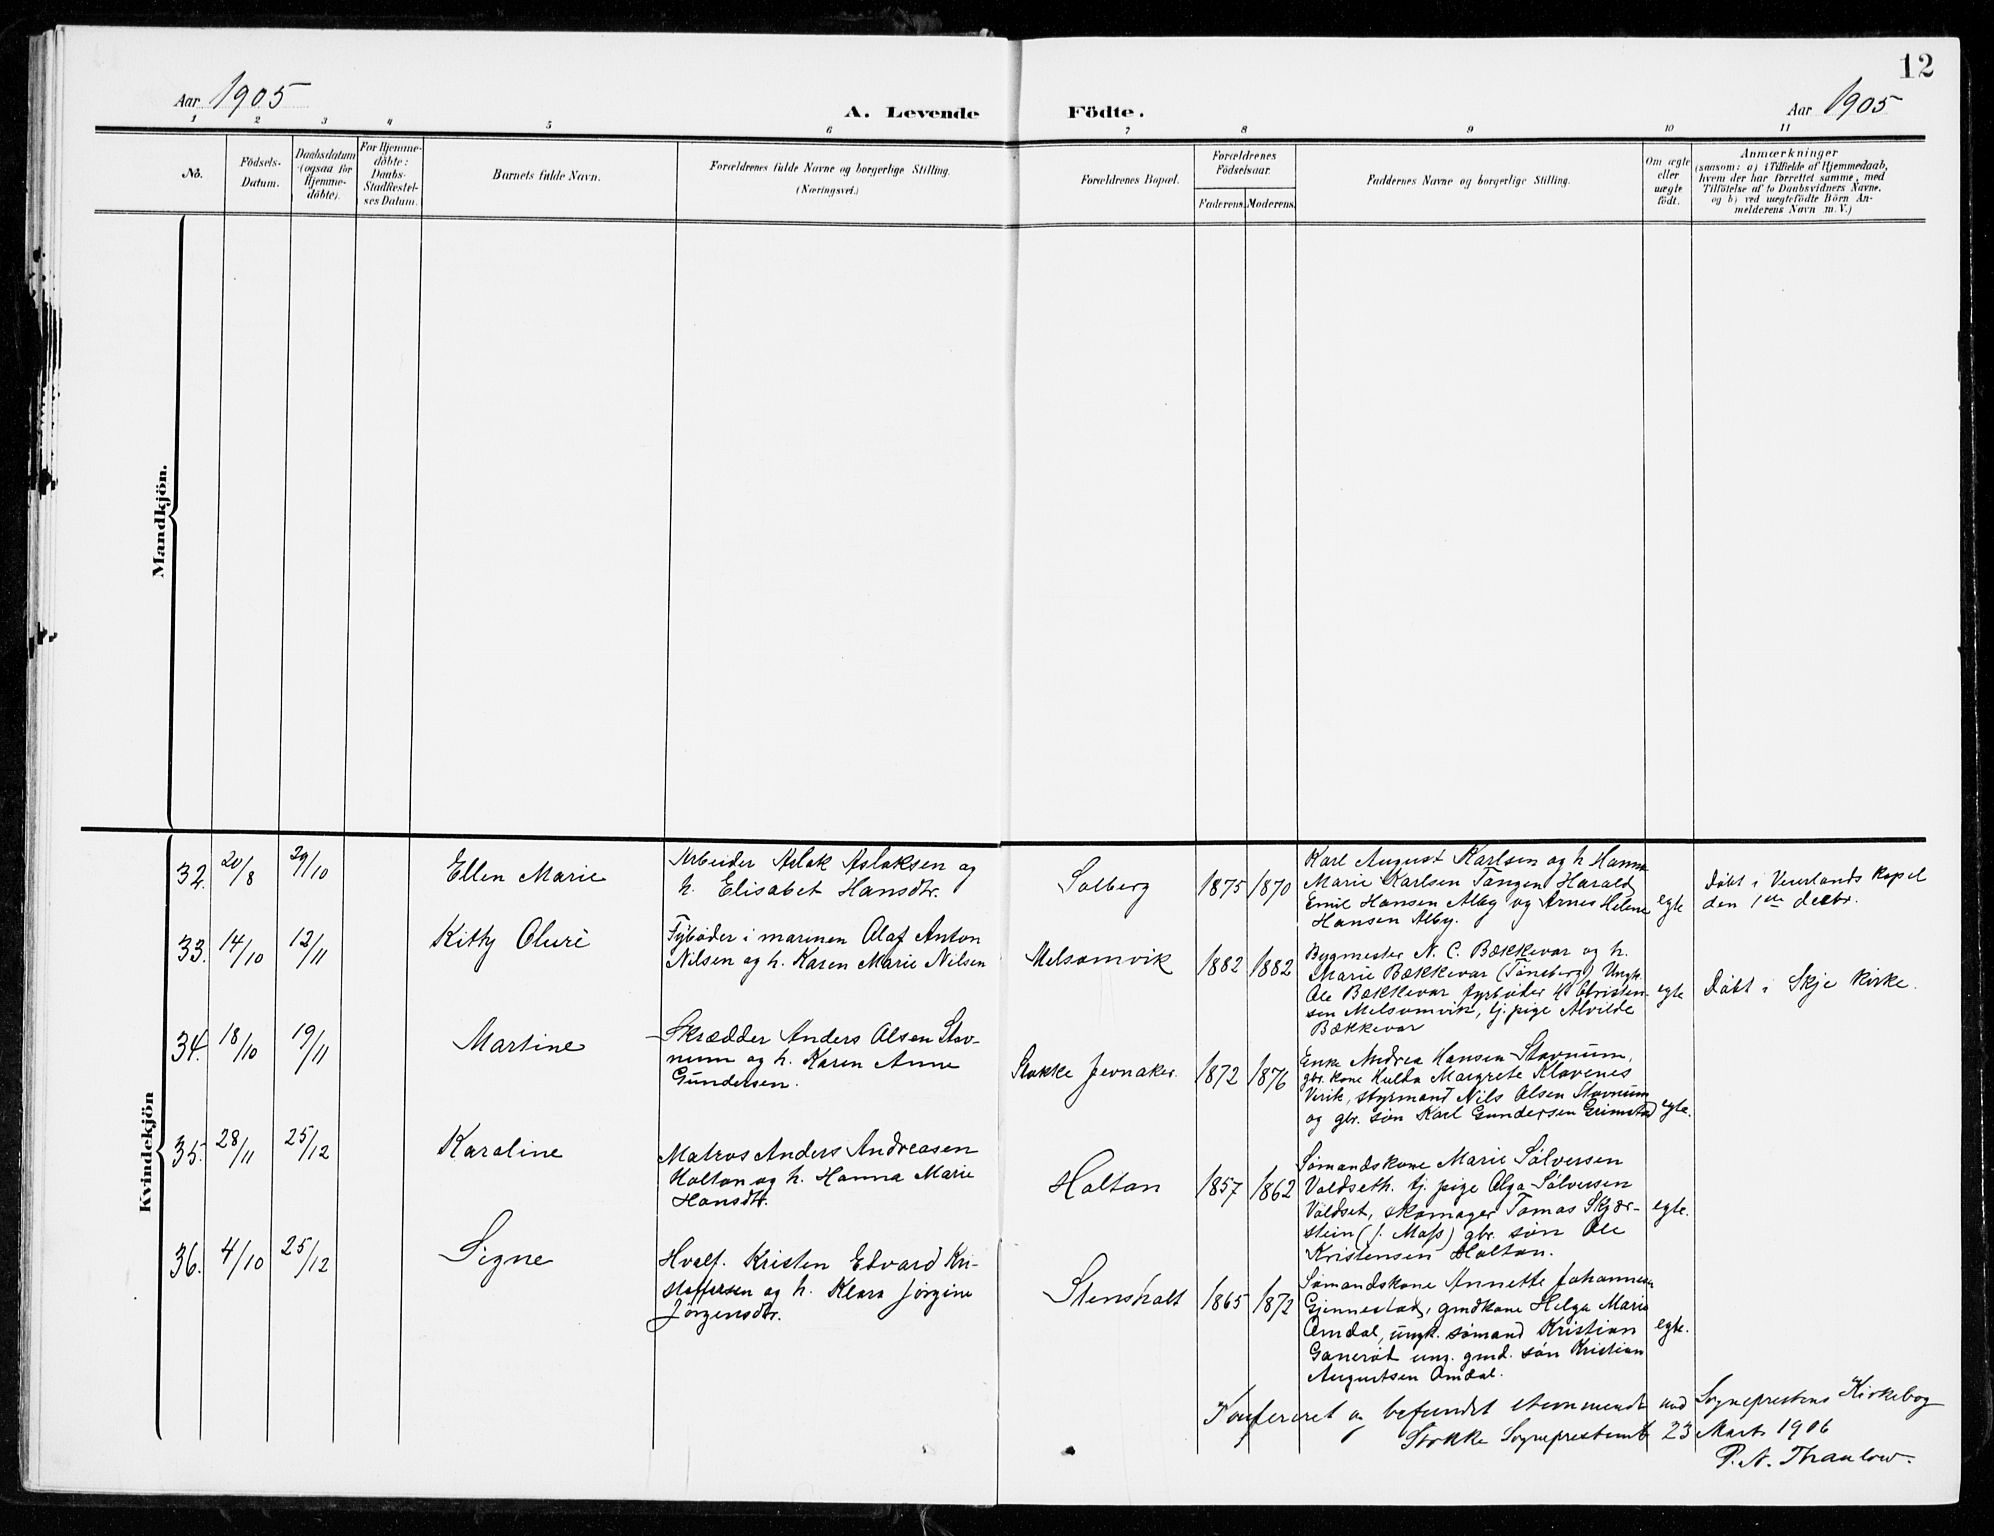 12
Aar 1905
A. Levende Födte.
Aar 1905
1 2 3 4 5 6 7 8 9 10 11
No.
Födsels-
Datum.
Daabsdatum
(ogsaa for
Hjemme-
döbte).
For Hjemme-
döbte:
Daabs-
Stadfæstel-
ses Datum.
Barnets fulde Navn.
Forældrenes fulde Navne og borgerlige Stilling.
(Næringsvei.)
Forældrenes Bopæl.
Forældrenes
Födselsaar.
Faderens. Moderens.
Faddernes Navne og borgerlige Stilling.
Om ægte
eller
uægte
födt.
Anmærkninger
(saasom: a) i Tilfælde af Hjemmedaab,
hvem der har forrettet samme, med
Tilföielse af to Daabsvidners Navne,
og b) ved uægtefödte Börn An-
melderens Navn m. V.)
Mandkjön.
Kvindekjön
32. 20/8 29/10
Ellen Marie
Arbeider Aslak Aslaksen og
h. Elisabet Hansdtr.
Solberg
1875 1870
Karl August Karlsen og h. Hanna
Marie Karlsen Tangen Harald
Emil Hansen Alby og Arnes Helene
Hansen Alby.
egte
Døbt i Veierlands Kapel
den 1ste decbr.
33. 14/10 12/11
Kitty Oluri
Fyrbøder i marinen Olaf Anton
Nilsen og h. Karen Marie Nilsen
Melsomvik
1882 1882
Bygmester N. C. Bækkevar og h.
Marie Bækkevar (Tønsberg) Ungk.
Ole Bækkevar fyrbøder Christen-
sen Melsomvik, tj. pige Alvilde
Bækkevar
egte
Døbt i Skje Kirke.
34. 18/10 19/11
Martine
Skrædder Anders Olsen Stav-
num og h. Karen Anne
Gundersen.
Stokke Jevnaker.
1872 1876
Enke Andrea Hansen Stavnum,
gbr. kone Hulda Margrete Klavenes
Virik, styrmand Nils Olsen Stavnum
og gbr. søn Karl Gundersen Grimstad
egte.
35. 28/11 25/12
Karoline
Matros Anders Andreasen
Holtan og h. Hanna Marie
Hansdtr.
Holtan
1857 1862
Sømandskone Marie Sølversen
Valdseth. tj. pige Olga Sølversen
Valdset, skomager Tomas Skjær-
stein (f. Moss) gbr. søn Ole
Kristensen Holtan.
egte.
36. 4/10 25/12
Signe
Hvalf. Kristen Edvard Kri-
stoffersen og h. Klara Jørgine
Jørgensdtr.
Stensholt
1865 1872
Sømandskone Annette Johannesen
Gjennestad, gmdkone Helga Marie
Omdal, ungk. sømand Kristian
Ganerød ung. gmd. søn Kristian
Augustsen Omdal.
egte.
Konfereret og befundet stemmende med Sogneprestens Kirkebog
Stokke Sogneprestembt 23 Marts 1906
P. N. Thaulow.